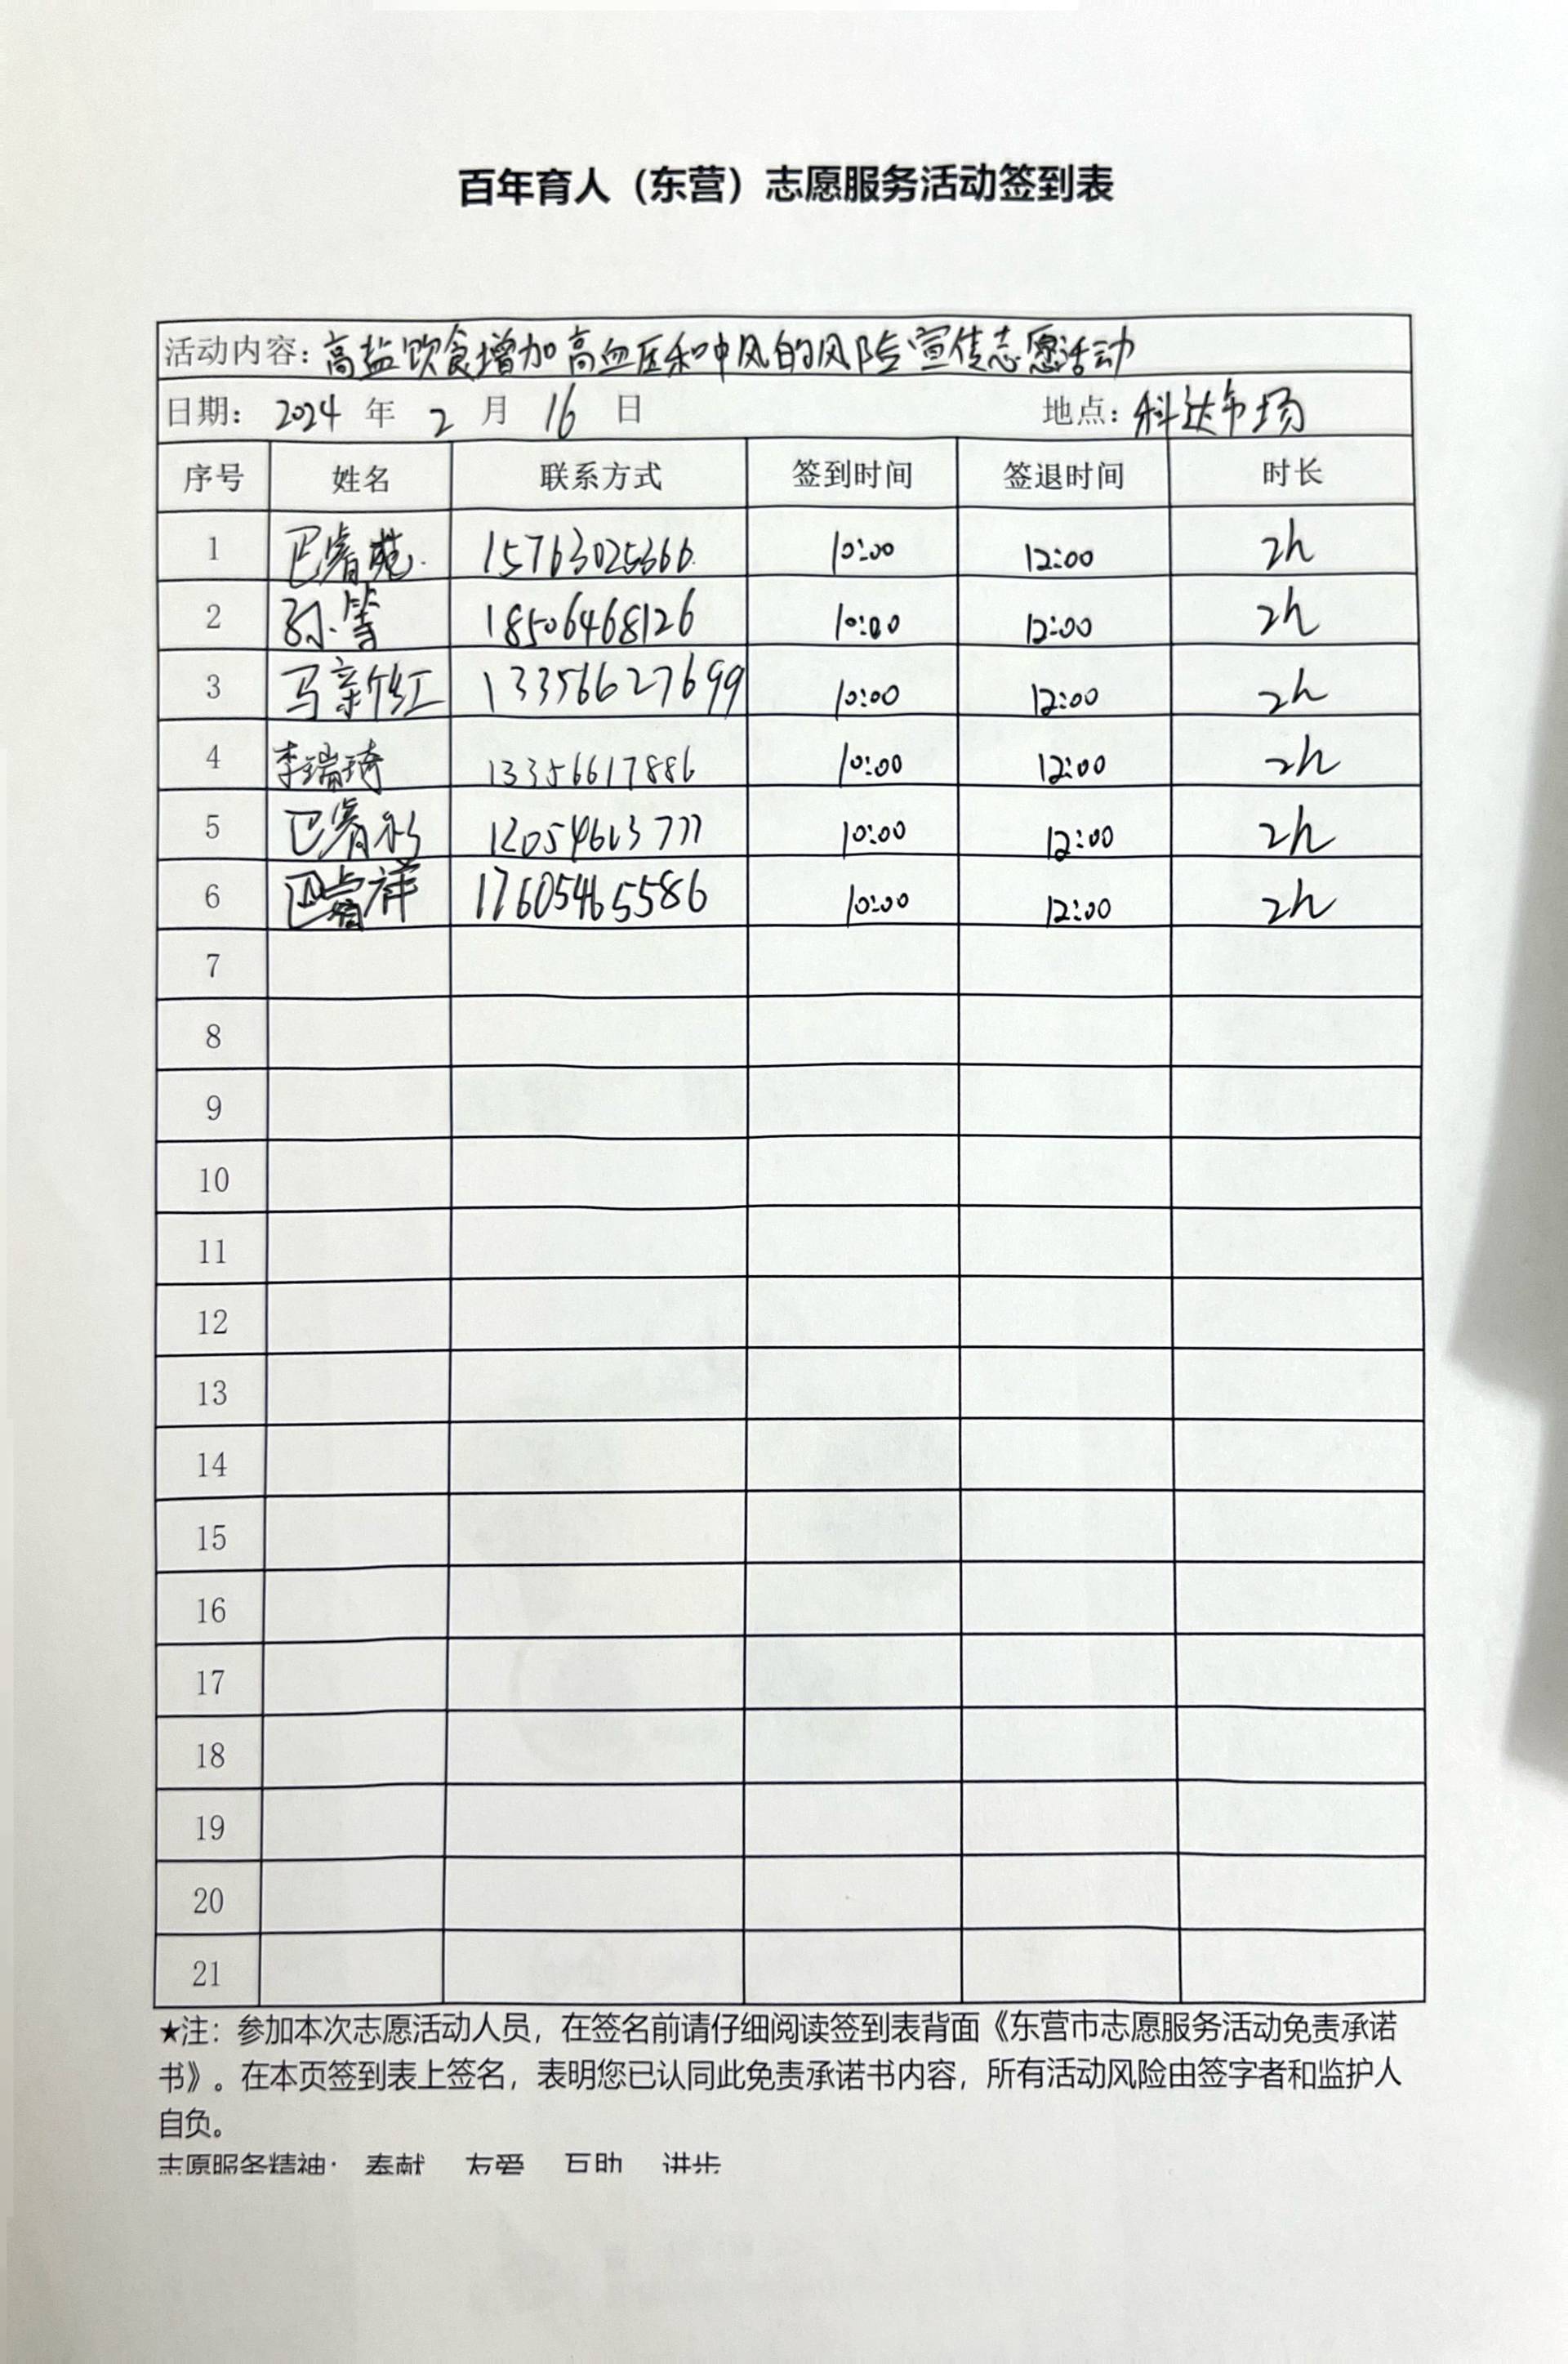 百年育人（东营）志愿服务活动签到表
活动内容：高盐饮食增加高血压和中风的风险宣传志愿活动
日期： 2024 年 2 月 16 日 地点：科达市场
序号 姓名 联系方式 签到时间 签退时间 时长
1 巴睿苑 15763025366 10:00 12:00 2h
2 孙等 18506468126 10:00 12:00 2h
3 马新红 13356627699 10:00 12:00 2h
4 李瑞琦 13356617886 10:00 12:00 2h
5 巴睿 10:00 12:00 2h
6 巴睿祥 17605465586 10:00 12:00 2h
7
8
9
10
11
12
13
14
15
16
17
18
19
20
21
★注：参加本次志愿活动人员，在签名前请仔细阅读签到表背面《东营市志愿服务活动免责承诺
书》。在本页签到表上签名，表明您已认同此免责承诺书内容，所有活动风险由签字者和监护人
自负。
志愿服务精神： 奉献 友爱 互助 进步